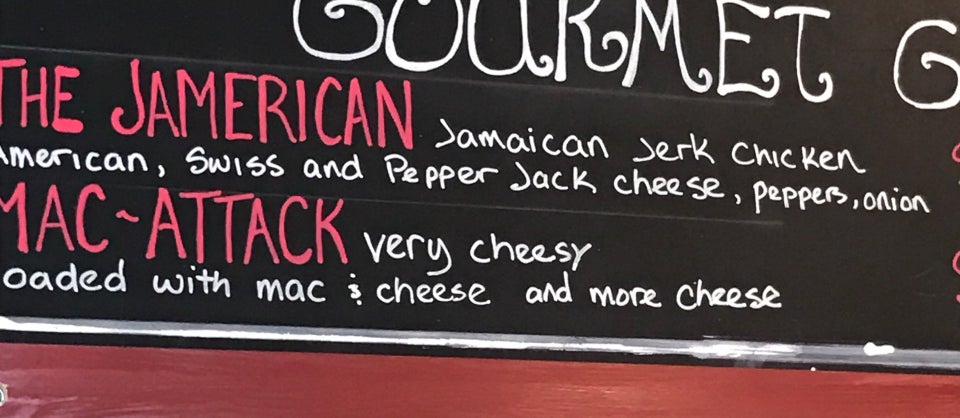 GOURMET G
THE JAMERICAN Jamaican Jerk Chicken
American, Swiss and Pepper Jack cheese, peppers, onion
MAC~ATTACK very cheesy
oaded with mac & cheese and more cheese